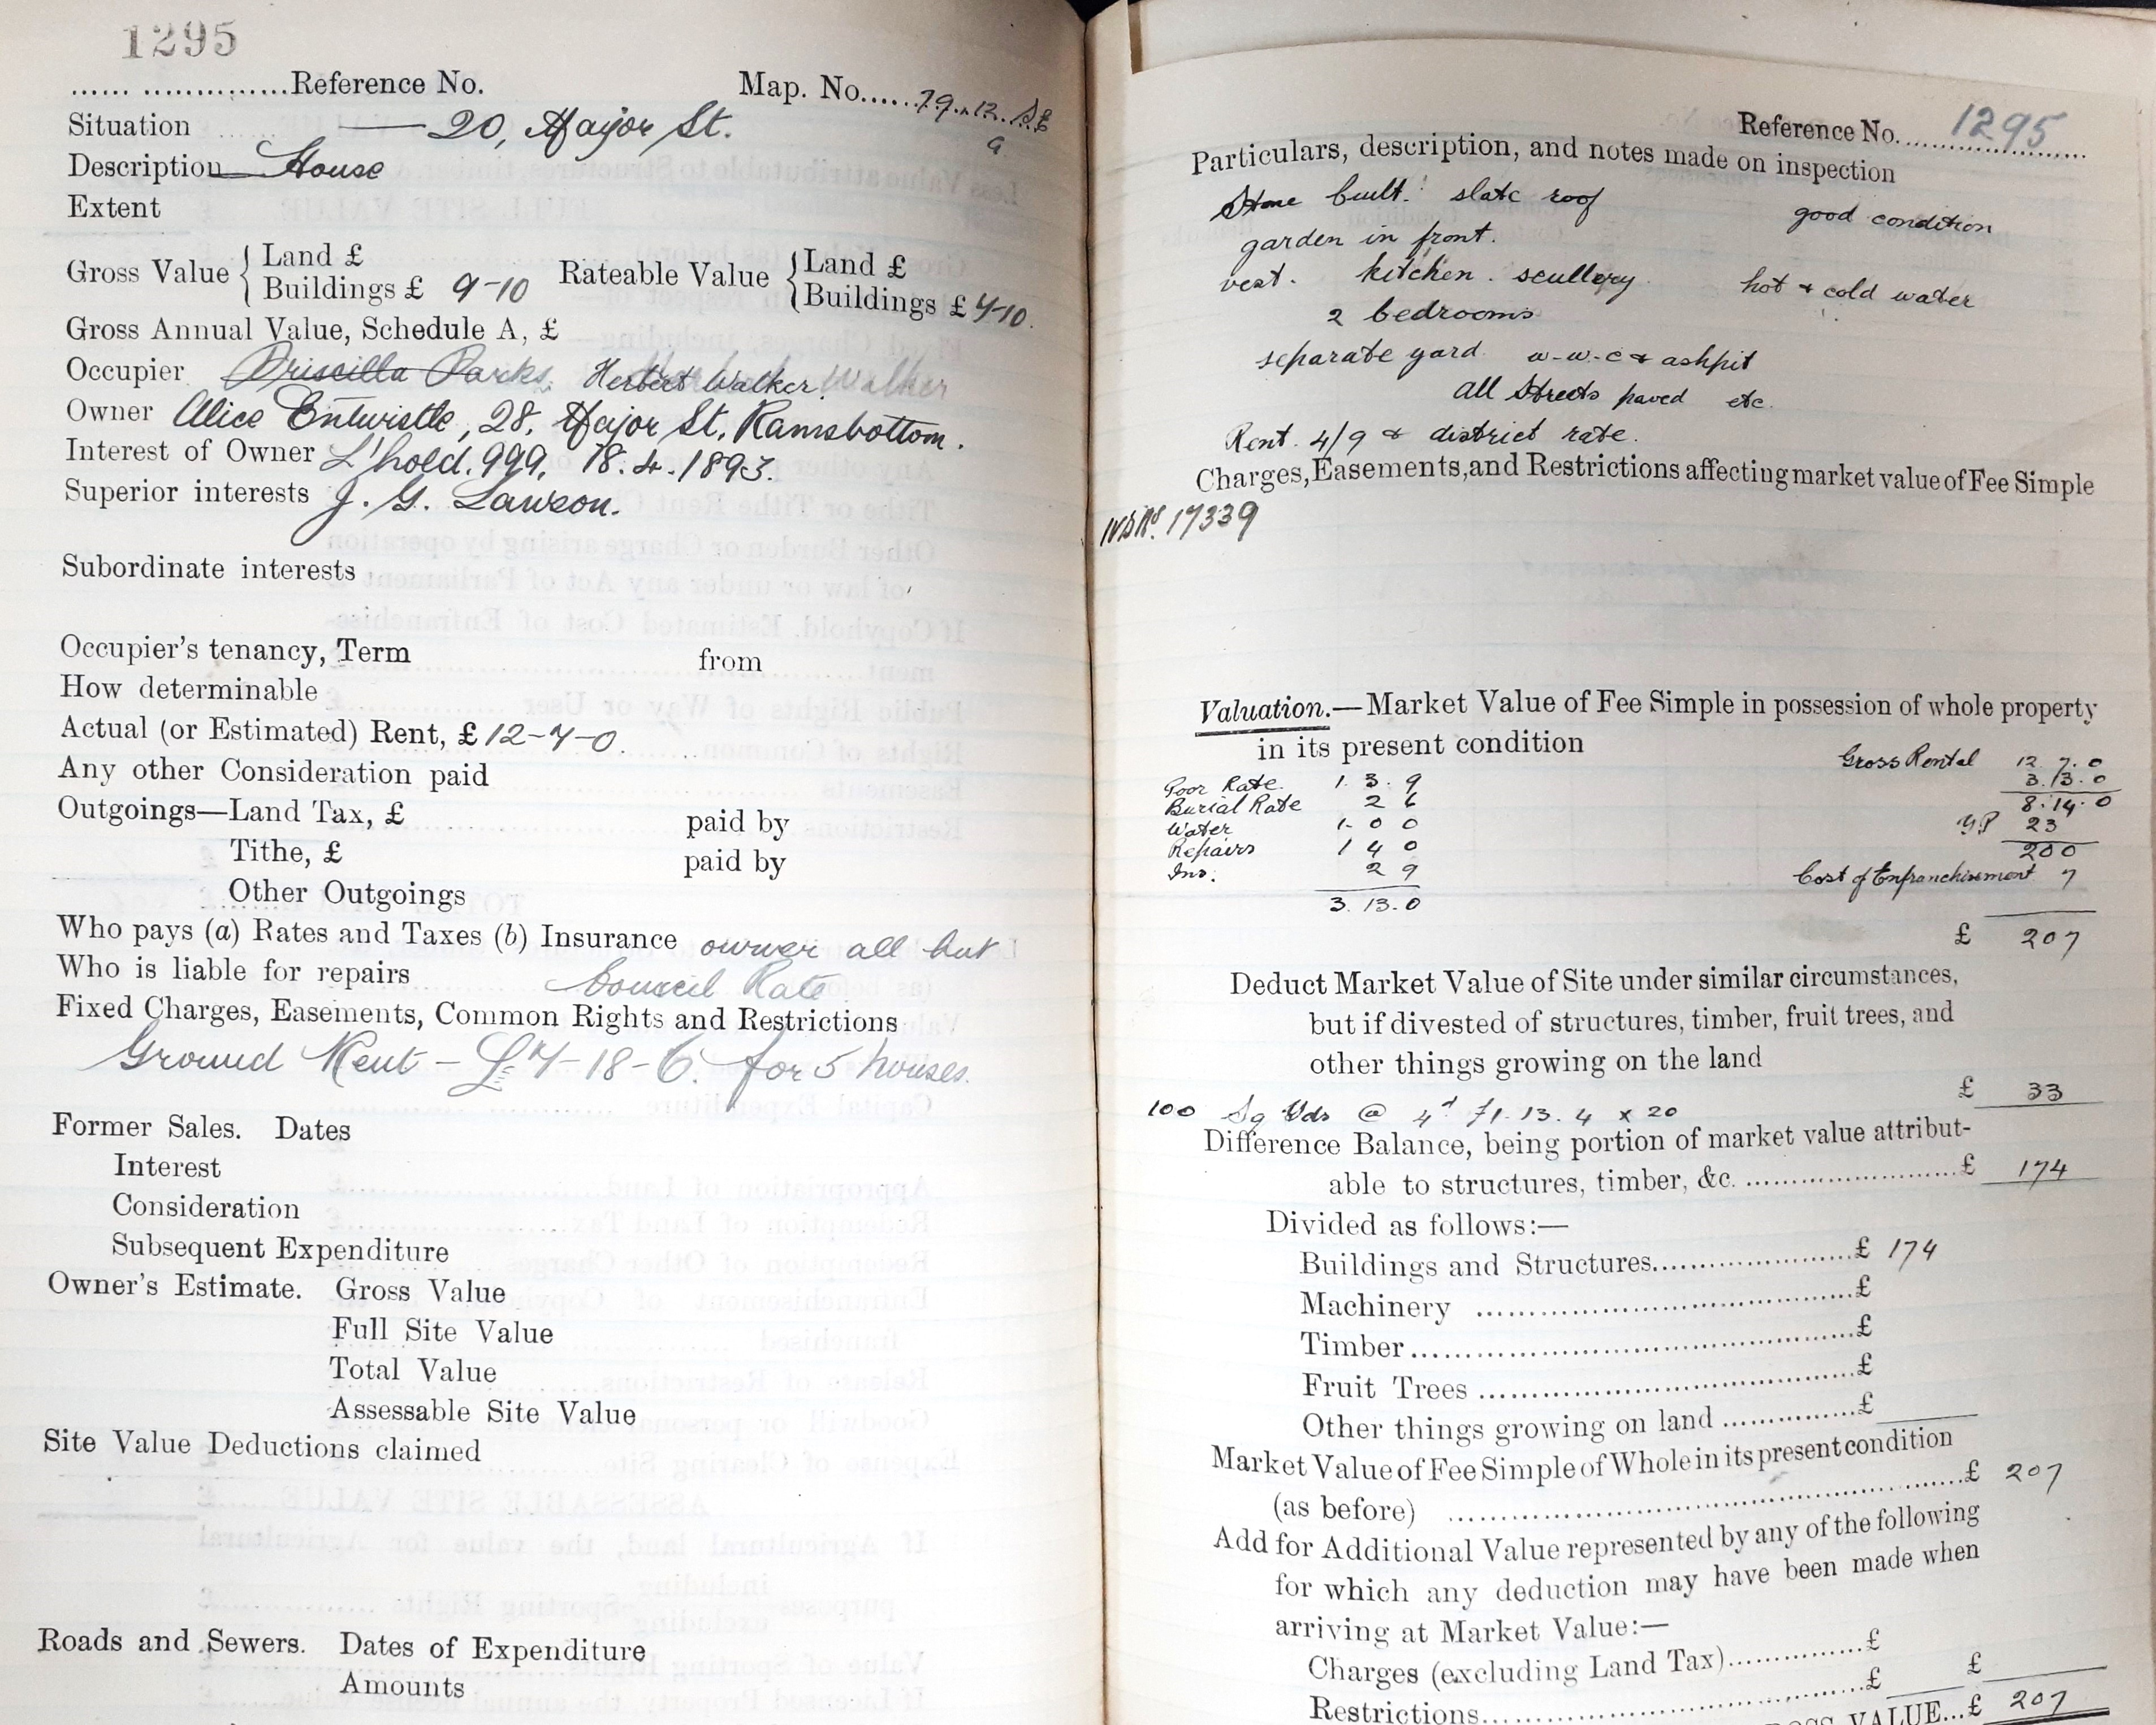 1295
...... ..............Reference No. Map. No......79.12. SE
9
Situation 20, Major St.
Description House
Extent
Gross Value { Land £ Rateable Value { Land £
Buildings £ 9-10 Buildings £ 7-10.
Gross Annual Value, Schedule A, £
Occupier Priscilla Parks. Herbert Walker. Walker
Owner Alice Entwistle, 28, Major St, Ramsbottom.
Interest of Owner L'hold. 999. 18.4.1893.
Superior interests J. G. Lawson.
Subordinate interests
Occupier's tenancy, Term from
How determinable
Actual (or Estimated) Rent, £ 12-7-0.
Any other Consideration paid
Outgoings—Land Tax, £ paid by
Tithe, £ paid by
Other Outgoings
Who pays (a) Rates and Taxes (b) Insurance owner all but
Who is liable for repairs Council Rate
Fixed Charges, Easements, Common Rights and Restrictions
Ground Rent - £7-18-6. for 5 houses.
Former Sales. Dates
Interest
Consideration
Subsequent Expenditure
Owner's Estimate. Gross Value
Full Site Value
Total Value
Assessable Site Value
Site Value Deductions claimed
Roads and Sewers. Dates of Expenditure
Amounts
Reference No. 1295
Particulars, description, and notes made on inspection
Stone built. slate roof good condition
garden in front.
vest. kitchen. scullery. hot & cold water
2 bedrooms
separate yard. w-w-c & ashpit
All Streets paved etc.
Rent. 4/9 & district rate.
Charges, Easements, and Restrictions affecting market value of Fee Simple
17339
Valuation.—Market Value of Fee Simple in possession of whole property
in its present condition
Gross Rental 12. 7. 0
Poor Rate. 1. 3. 9 3.13.0
Burial Rate 2 6 8.14.0
Water 1- 0 0 YP 23
Repairs 1 4 0 200
Ins. 2 9 Cost of Enfranchisement 7
3. 13. 0
£ 207
Deduct Market Value of Site under similar circumstances,
but if divested of structures, timber, fruit trees, and
other things growing on the land
£ 33
100 Sq Yds @ 4d £1.13.4 x 20
Difference Balance, being portion of market value attribut-
able to structures, timber, &c. ........................£ 174
Divided as follows:—
Buildings and Structures......................£ 174
Machinery ........................................£
Timber...............................................£
Fruit Trees ........................................£
Other things growing on land ...............£
Market Value of Fee Simple of Whole in its present condition
(as before) ........................................................£ 207
Add for Additional Value represented by any of the following
for which any deduction may have been made when
arriving at Market Value:—
Charges (excluding Land Tax)................£
£
Restrictions........................................£
GROSS VALUE...£ 207